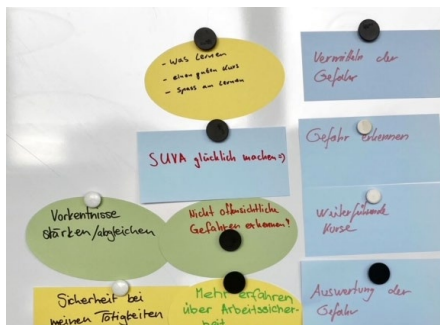 - Was lernen
- einen guten Kurs
- Spass am Lernen
Vermitteln der
Gefahr
SUVA glücklich machen :)
Gefahr erkennen
Vorkentnisse
stärken/abgleichen
Nicht offensichtliche
Gefahren erkennen?
Weiterführende
Kurse
Sicherheit bei
meinen Tätigkeiten
Mehr erfahren
über Arbeitssicher-
heit
Auswertung der
Gefahr